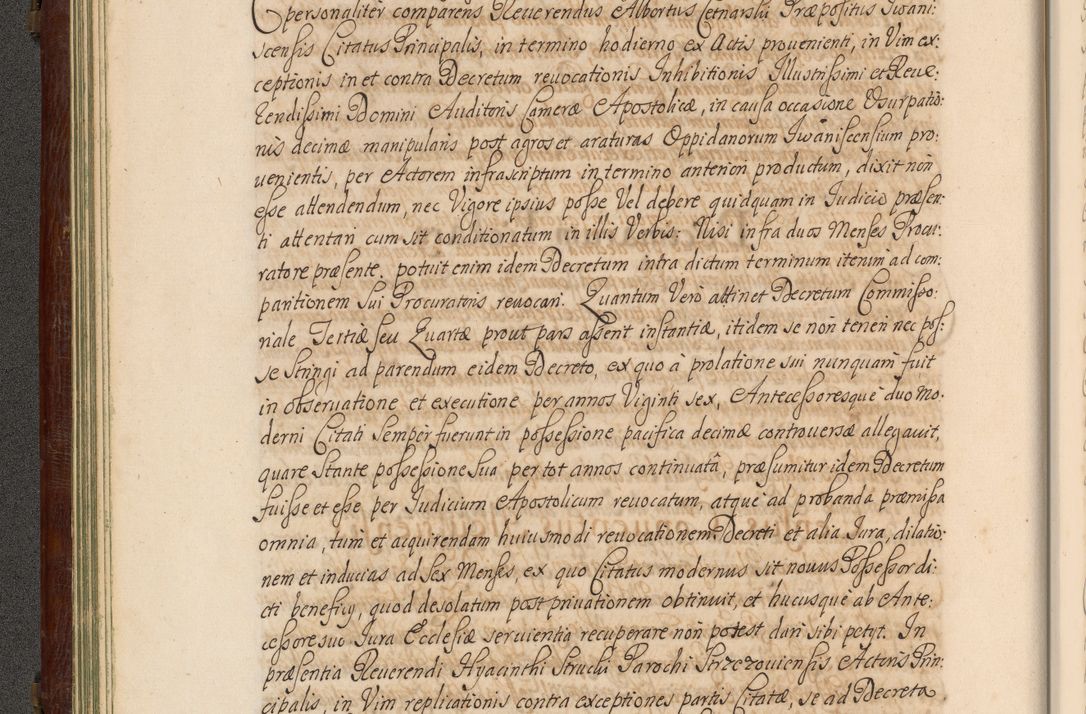 personalitèr comparens Reuerendus Albertus Cetnarski Præpositus Iwani:
scensis Citatus Principalis, in termino hodierno ex Actis prouenienti, in Vim ex:
ceptionis in et contra Decretum reuocationis Inhibitionis Illustrissimi et Reue:
rendissimi Domini Auditoris Cameræ Apostolicæ, in causa occasione Vsurpatio:
nis decimæ manipularis post agros et araturas Oppidanorum Iwaniscensium pro:
uenientis, per Actorem infrascriptum in termino anteriori productum, dixit non
esse attendendum, nec Vigore ipsius posse Vel debere quidquam in Iudicio præsen:
ti attentari cum sit conditionatum in illis Verbis: Nisi infra duos Menses Procu:
ratore præsente. potuit enim idem Decretum intra dictum terminum iterum ad com:
paritionem sui Procuratoris reuocari. Quantum Verò attinet Decretum Commisso:
riale Tertiæ seu Quartæ prout pars asserit instantiæ, itidem se non teneri nec pos:
se stringi ad parendum eidem Decreto, ex quo à prolatione sui nunquam fuit
in obseruatione et executione per annos Viginti sex, Antecessoresque duo mo:
derni Citati sempèr fuerunt in possessione pacifica decimæ controuersæ allegauit,
quare stante possessione sua per tot annos continuatâ, præsumitur idem Decretum
fuisse et esse per Iudicium Apostolicum reuocatum, atque ad probanda præmissa
omnia, tùm et acquirendam huiusmodi reuocationem Decreti et alia Iura, dilatio:
nem et inducias ad sex Menses, ex quo Citatus modernus sit nouus Possessor di:
cti beneficij, quod desolatum post priuationem obtinuit, et hucusque ab Ante:
cessore suo Iura Ecclesiæ seruientia recuperare non potest dari sibi petijt. In
præsentia Reuerendi Hyacinthi Struski Parochi Strzezouiensis Actoris Prin:
cipalis, in Vim replicationis contra exceptiones partis Citatæ, se ad Decreta